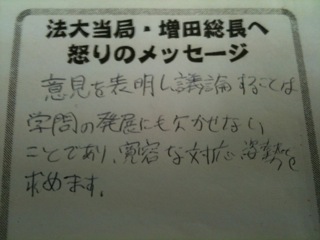 法大当局・増田総長へ
怒りのメッセージ
意見を表明し議論することは
学問の発展にも欠かせない
ことであり、寛容な対応、姿勢を
求めます。